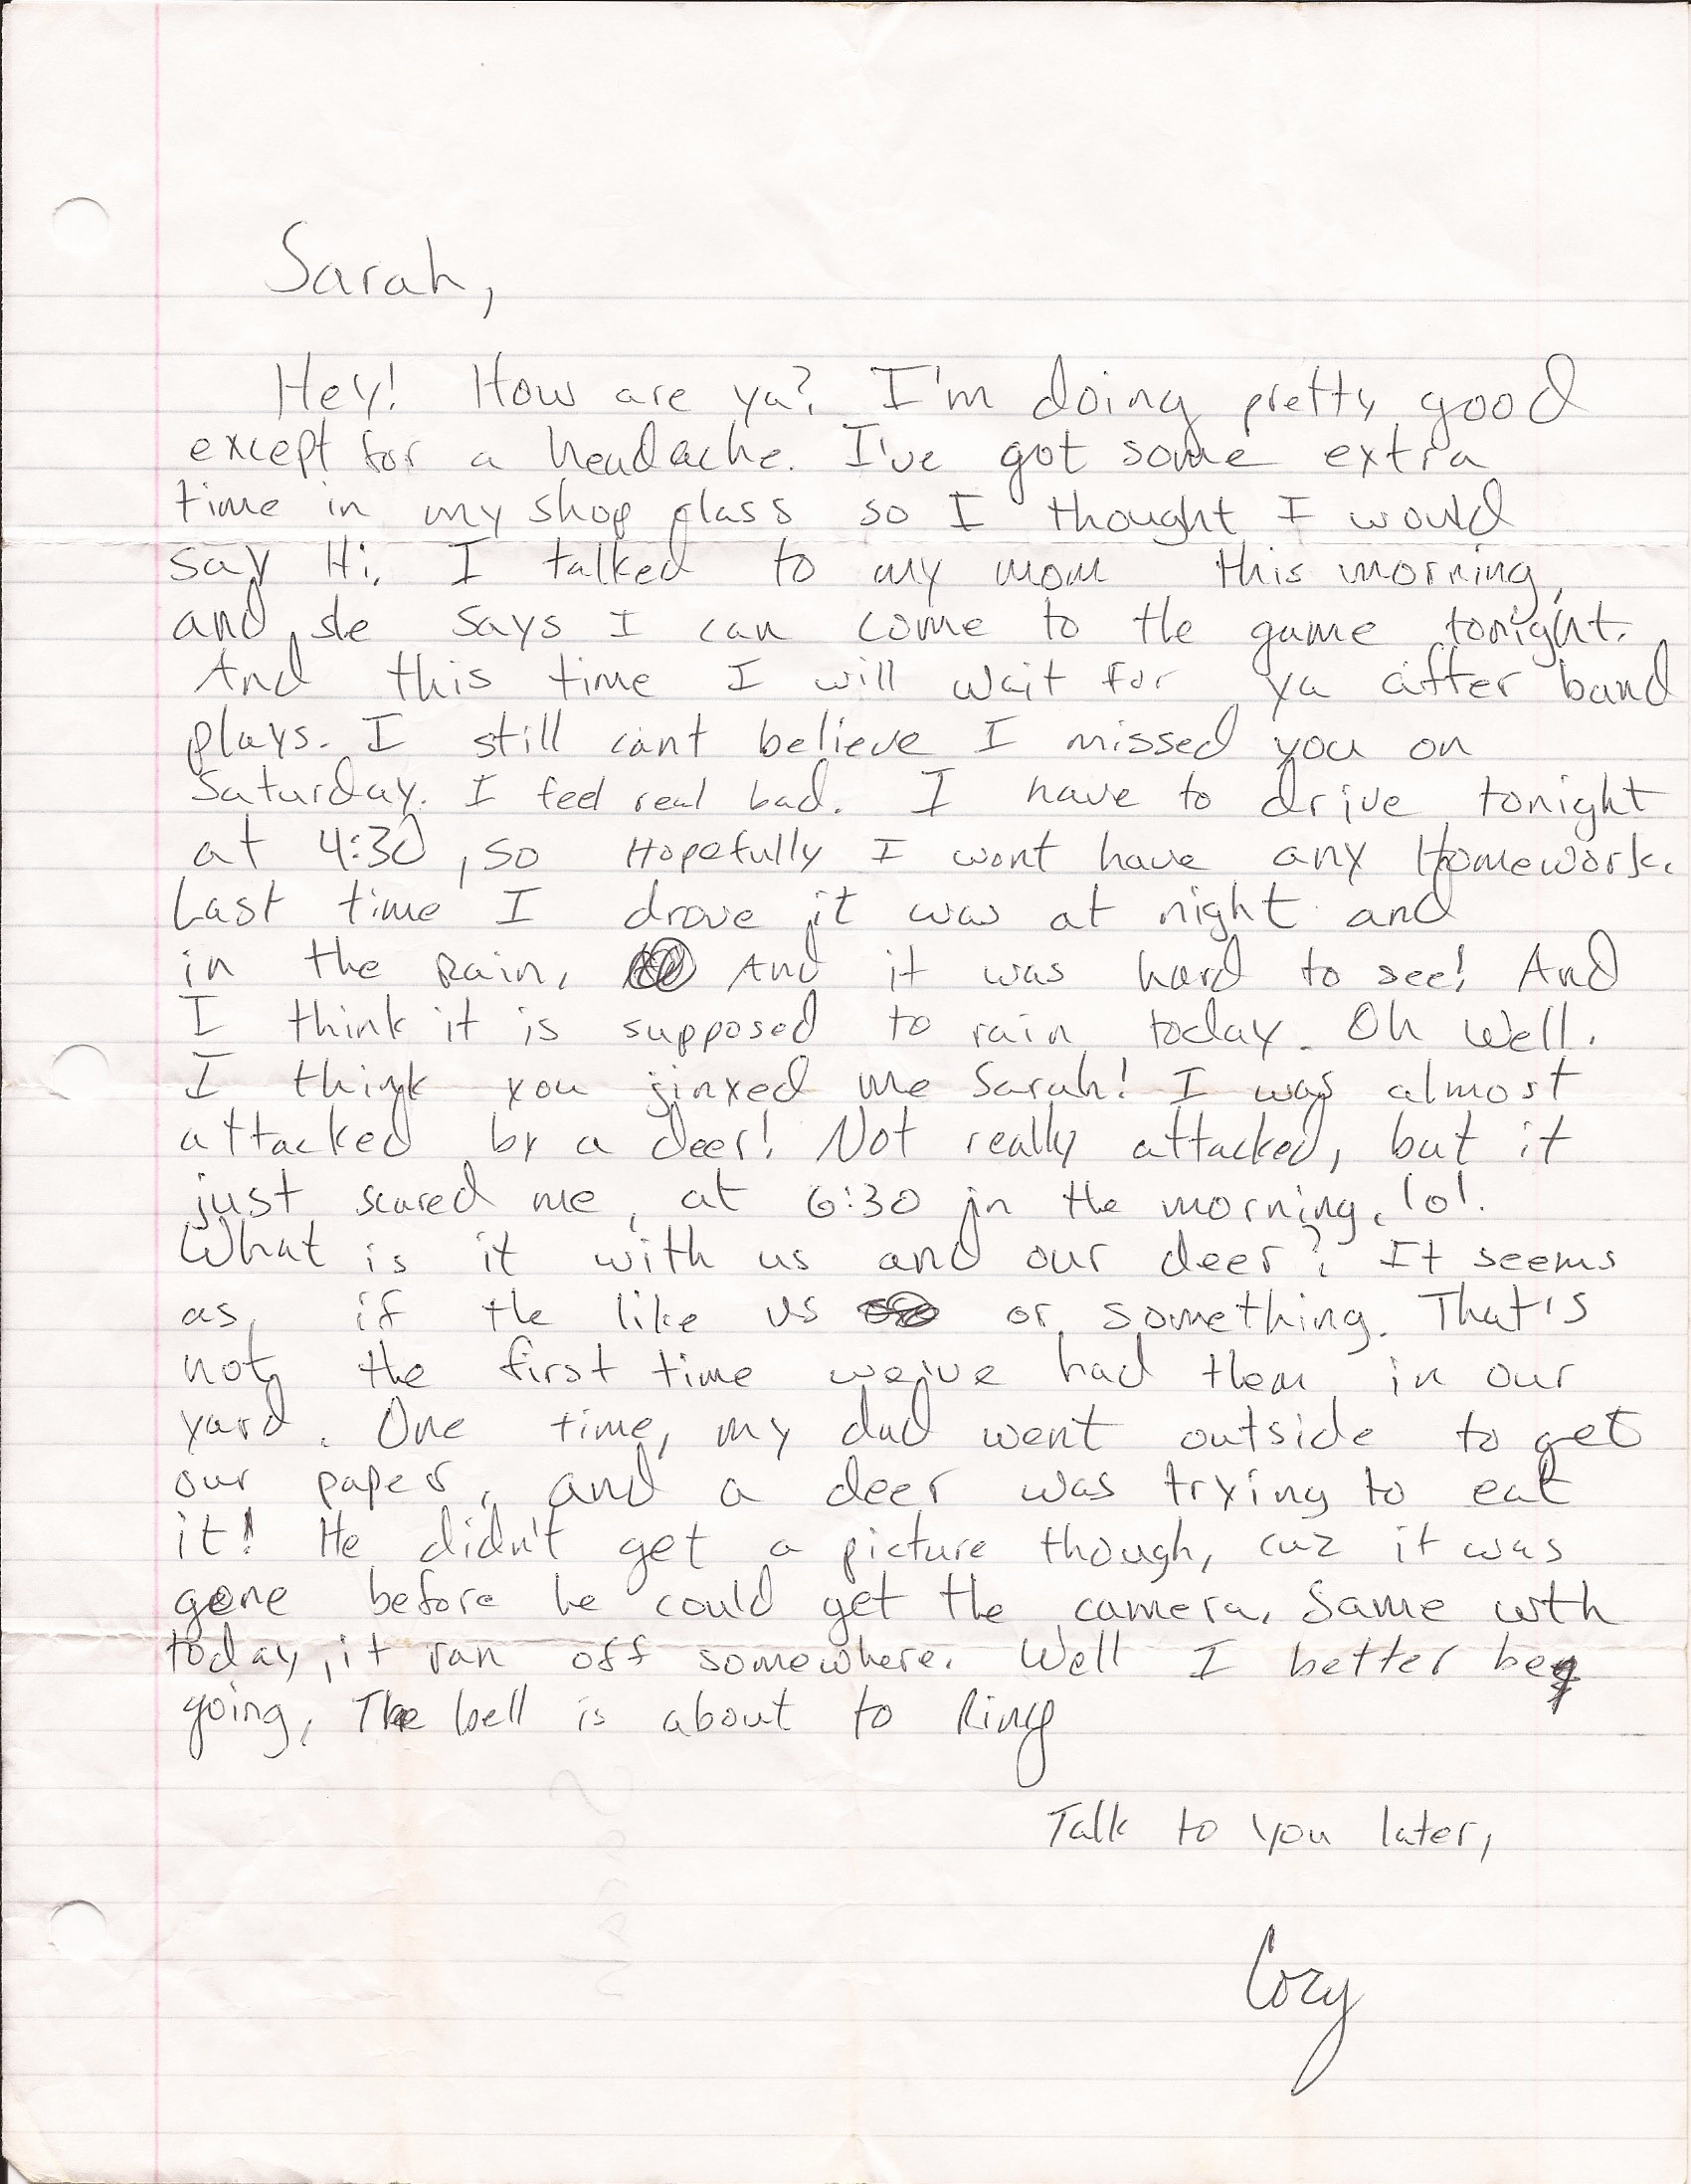 Sarah,
Hey! How are ya? I'm doing pretty good
except for a headache. I've got some extra
time in my shop class so I thought I would
say Hi. I talked to my mom this morning,
and she says I can come to the game tonight.
And this time I will wait for ya after band
plays. I still cant believe I missed you on
Saturday. I feel real bad. I have to drive tonight
at 4:30, so Hopefully I wont have any Homework.
Last time I drove it was at night and
in the Rain, And it was hard to see! And
I think it is supposed to rain today. Oh Well.
I think you jinxed me Sarah! I was almost
attacked by a deer! Not really attacked, but it
just scared me, at 6:30 in the morning, lol.
What is it with us and our deer? It seems
as if the like us or something. That's
not the first time we've had them in our
yard. One time, my dad went outside to get
our paper, and a deer was trying to eat
it! He didn't get a picture though, cuz it was
gone before he could get the camera. Same wth
today, it ran off somewhere. Well I better be
going, The bell is about to Ring
Talk to you later,
Cory